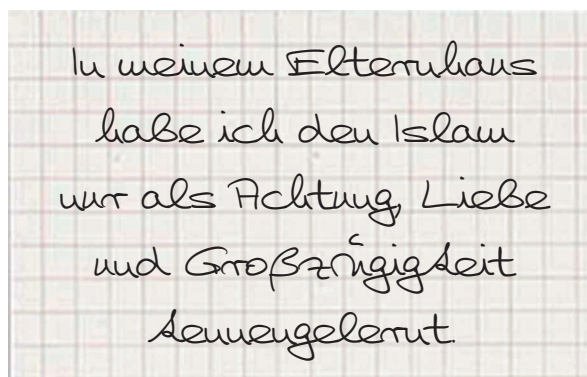 In meinem Elternhaus
habe ich den Islam
nur als Achtung, Liebe
und Großzügigkeit
kennengelernt.